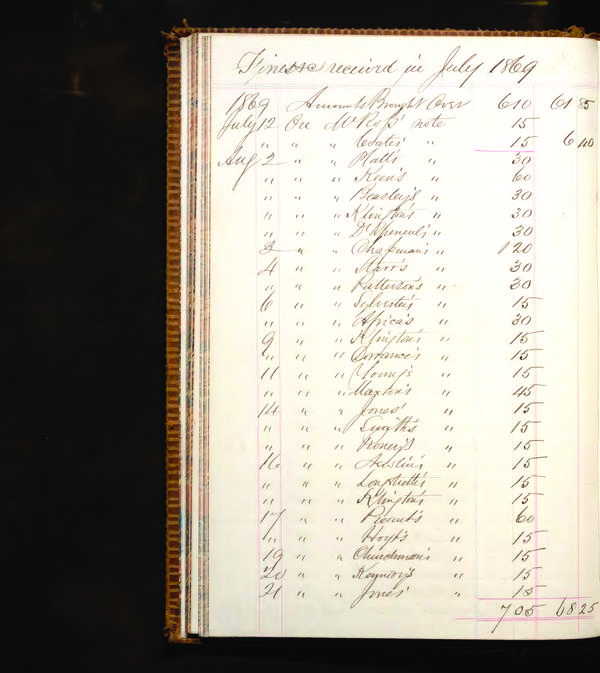 Fines received in July 1869
1869 Amounts Brought Over 6 10 61 85
July 12 On Mc Ross' note 15
" " " Coates' " 15 6 40
Aug 2 " " Platt's " 30
" " " Keen's " 60
" " " Beasley's " 30
" " " Klington's " 30
" " " Dr " 30
3 " " Chapman's " 1 20
4 " " Starr's " 30
" " " Patterson's " 30
6 " " Sylvester's " 15
" " " Africa's " 30
9 " " Klington's " 15
" " " Dorrance's " 15
11 " " Young's " 15
" " " Maxton's " 45
14 " " Jones' " 15
" " " Smyth's " 15
" " " Roney's " 15
16 " " " 15
" " " " 15
" " " Klington's " 15
17 " " " 60
" " " Hoyt's " 15
19 " " Churchman's " 15
20 " " Kennedy's " 15
21 " " Jones' " 15
7 05 68 25